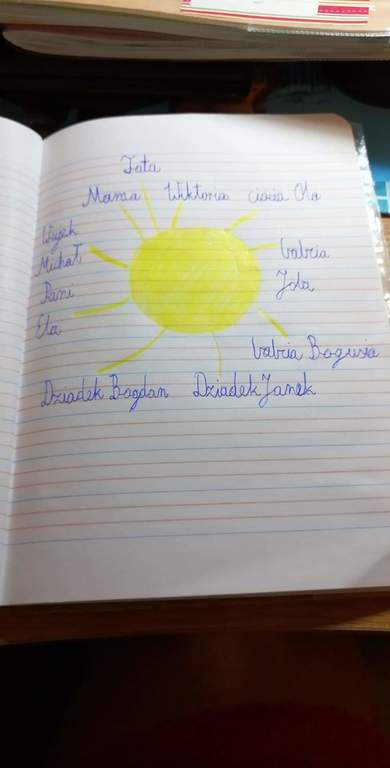 Tata
Mama Wiktoria ciocia Ola
Wujek
Michał
Pani
Ela
babcia
Jola
babcia Bogusia
Dziadek Bogdan Dziadek Janek